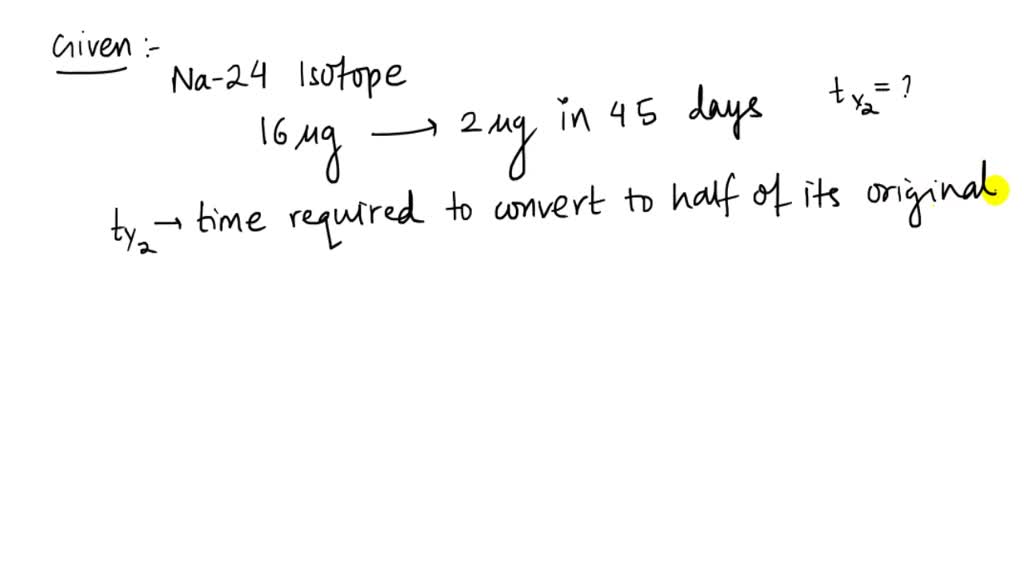 Given :-
Na-24 Isotope
16 μg → 2 μg in 45 days t½ = ?
t½ → time required to convert to half of its original